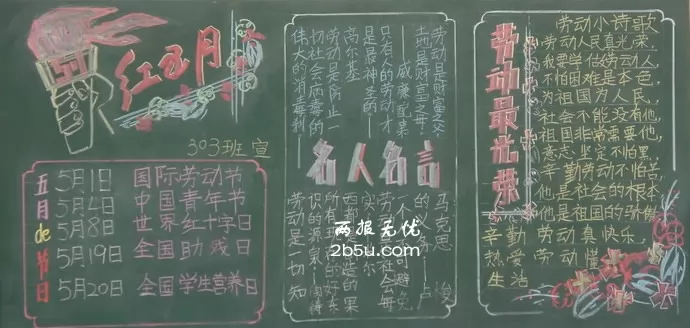 红五月
303班宣
五月de节日
5月1日 国际劳动节
5月4日 中国青年节
5月8日 世界红十字日
5月19日 全国助残日
5月20日 全国学生营养日
劳动是财富之父
土地是财富之母
——威廉配第
只有人的劳动才
是最神圣的
高尔基
劳动是防止一
切社会病毒的
伟大的消毒剂
名人名言
马克思
卢
劳动是一切知
识的源泉
劳动最光荣
劳动小诗歌
劳动人民真光荣，
我要学做劳动人，
不怕困难是本色，
为祖国为人民，
社会不能没有他，
祖国非常需要他，
意志坚定不怕黑，
辛勤劳动不怕苦，
他是社会的根本，
他是祖国的骄傲
辛勤劳动真快乐，
热爱劳动懂
生活
两报无忧
2b5u.com